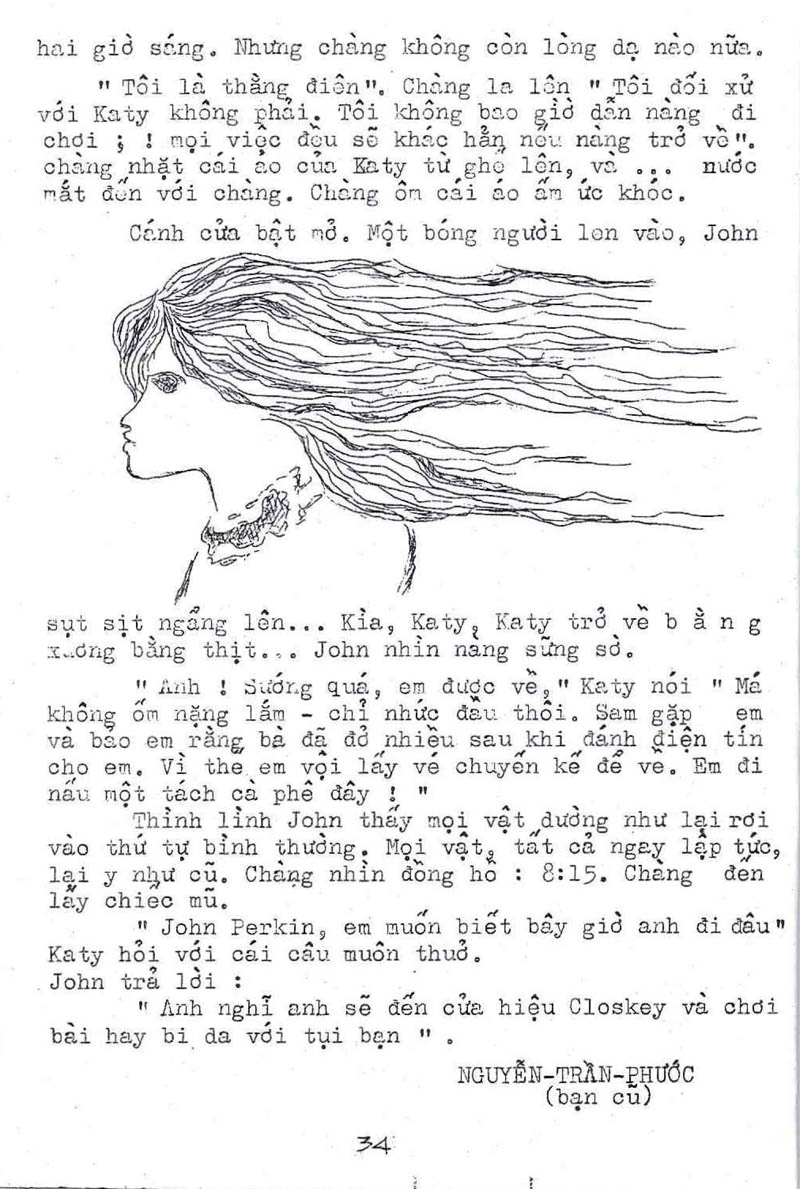 hai giờ sáng. Nhưng chàng không còn lòng dạ nào nữa.
" Tôi là thằng điên". Chàng la lên " Tôi đối xử
với Katy không phải. Tôi không bao giờ dẫn nàng đi
chơi ; ! mọi việc đều sẽ khác hẳn nếu nàng trở về".
chàng nhặt cái áo của Katy từ ghế lên, và ... nước
mắt đến với chàng. Chàng ôm cái áo ấm ức khóc.
Cánh cửa bật mở. Một bóng người len vào, John
sụt sịt ngẩng lên... Kìa, Katy, Katy trở về b ằ n g
xương bằng thịt... John nhìn nàng sững sờ.
" Anh ! Sướng quá, em được về," Katy nói " Má
không ốm nặng lắm - chỉ nhức đầu thôi. Sam gặp em
và bảo em rằng bà đã đỡ nhiều sau khi đánh điện tín
cho em. Vì thế em vội lấy vé chuyến kế để về. Em đi
nấu một tách cà phê đây ! "
Thình lình John thấy mọi vật dường như lại rơi
vào thứ tự bình thường. Mọi vật, tất cả ngay lập tức,
lại y như cũ. Chàng nhìn đồng hồ : 8:15. Chàng đến
lấy chiếc mũ.
" John Perkin, em muốn biết bây giờ anh đi đâu"
Katy hỏi với cái câu muôn thuở.
John trả lời :
" Anh nghĩ anh sẽ đến cửa hiệu Closkey và chơi
bài hay bi da với tụi bạn " .
NGUYỄN-TRẦN-PHƯỚC
(bạn cũ)
34